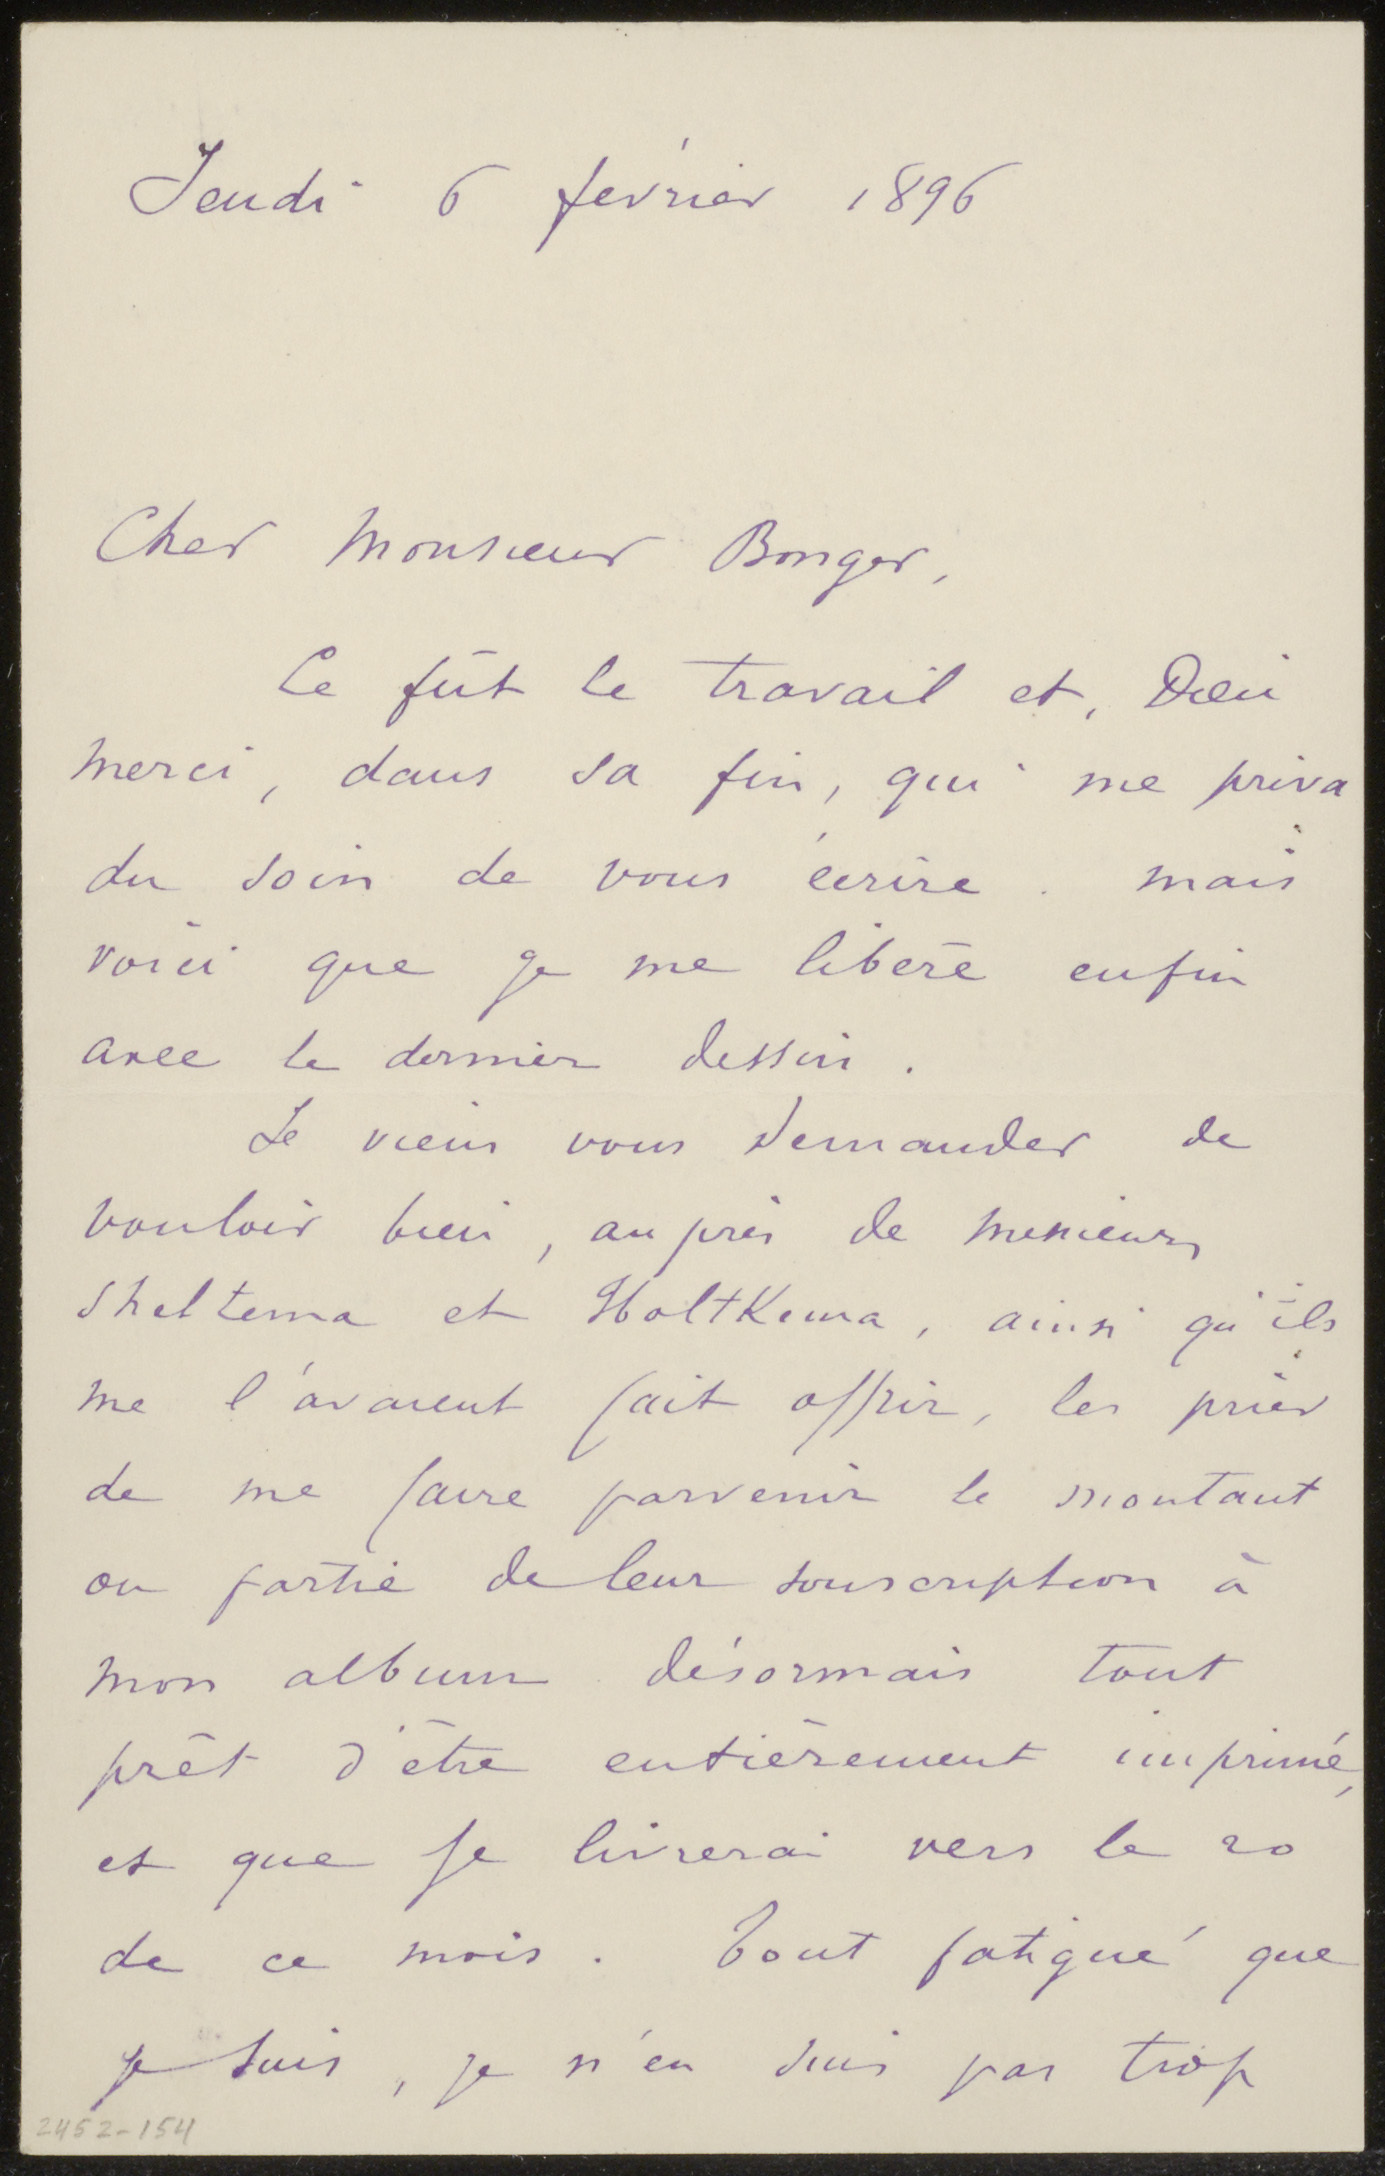 Jeudi 6 février 1896
Cher Monsieur Bonger,
Ce fût le travail et, Dieu
merci, dans sa fin, qui me priva
du soin de vous écrire. mais
voici que je me libère enfin
avec le dernier dessin.
Je viens vous demander de
vouloir bien, auprès de messieurs
Sheltema et Holtkema, ainsi qu'ils
me l'avaient fait offrir, les prier
de me faire parvenir le montant
ou partie de leur souscription à
mon album désormais tout
prêt d'être entièrement imprimé,
et que je livrerai vers le 20
de ce mois. Tout fatigué que
je suis, je n'en suis pas trop
2452-154